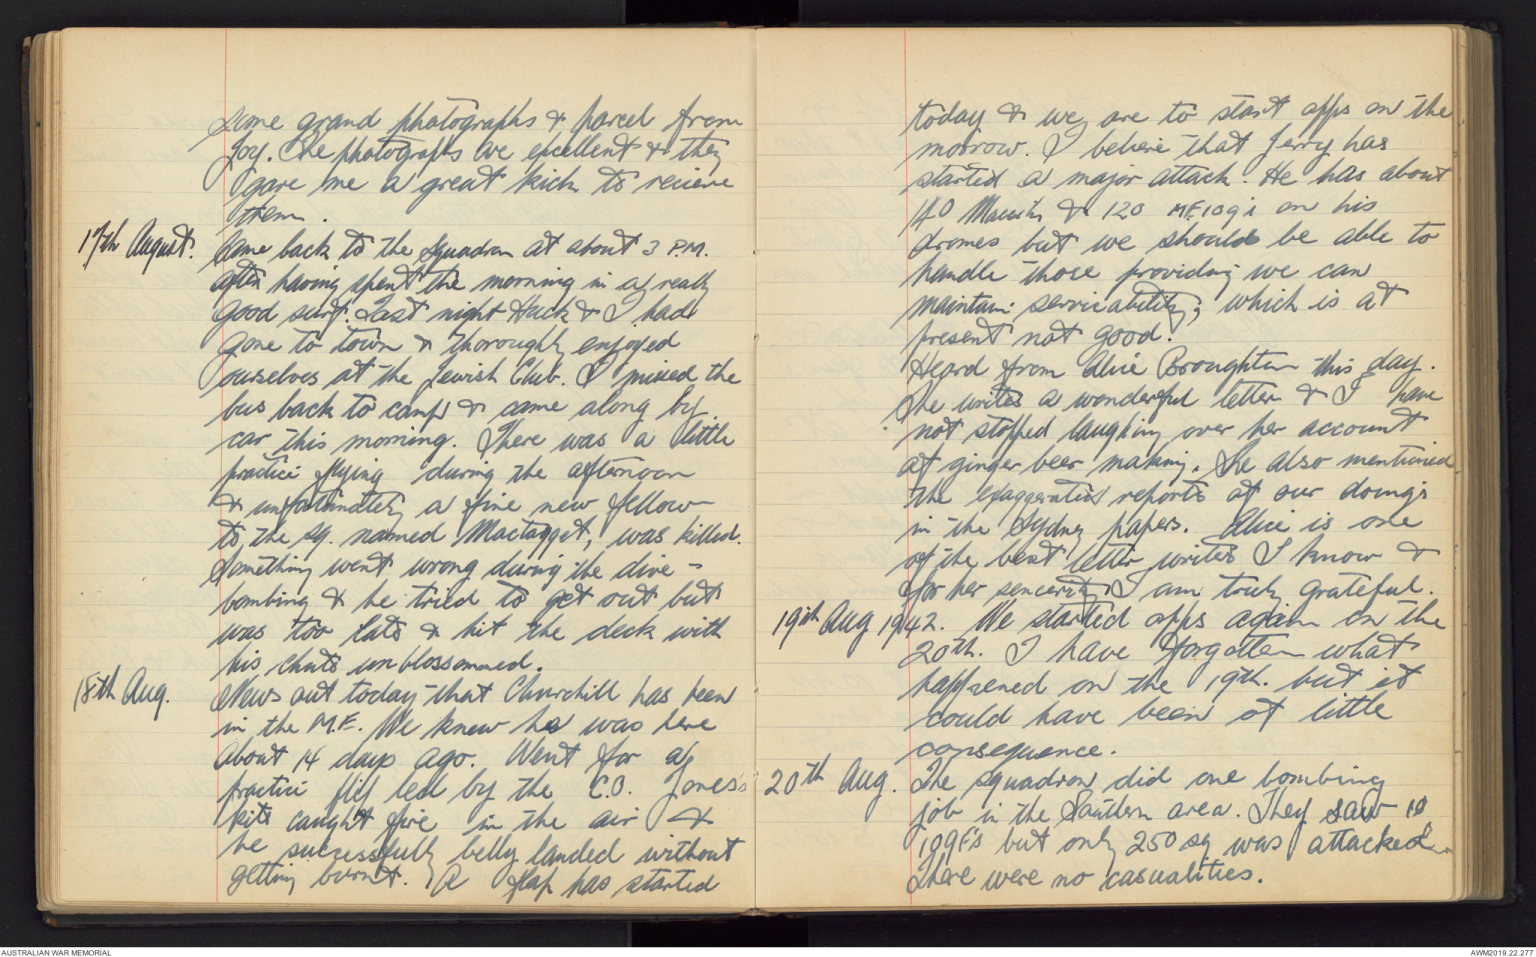 some grand photographs & parcel from
Joy. The photographs are excellent & they
gave me a great kick to recieve
them.
17th August. Came back to the squadron at about 3 P.M.
after having spent the morning in a really
good surf. Last night Huck & I had
gone to town & thoroughly enjoyed
ourselves at the Jewish Club. I missed the
bus back to camp & came along by
car this morning. There was a little
practice flying during the afternoon
& unfortunately a fine new fellow
to the sq. named Mactagget, was killed.
Something went wrong during the dive-
bombing & he tried to get out but
was too late & hit the deck with
his chute unblossommed.
18th Aug. News out today that Churchill has been
in the M.E. We knew he was here
about 14 days ago. Went for a
practice flip led by the C.O. Jones's
kite caught fire in the air &
he successfully belly landed without
getting burnt. A flap has started
today & we are to start opps on the
morrow. I believe that Jerry has
started a major attack. He has about
40 Macchis & 120 M.E.109's on his
dromes but we should be able to
handle those providing we can
maintain servicability, which is at
present not good.
Heard from Alice Broughton this day.
She writes a wonderful letter & I have
not stopped laughing over her account
of ginger beer making. She also mentioned
the exaggerated reports of our doings
in the Sydney papers. Alice is one
of the best letter writers I know &
for her sencerity I am truly grateful.
19th Aug 1942. We started opps again on the
20th. I have forgotten what
happened on the 19th. but it
could have been of little
consequence.
20th Aug. The squadron did one bombing
job in the Southern area. They saw 10
109F's but only 250 sq was attacked.
There were no casualities.
AUSTRALIAN WAR MEMORIAL
AWM2019.22.277